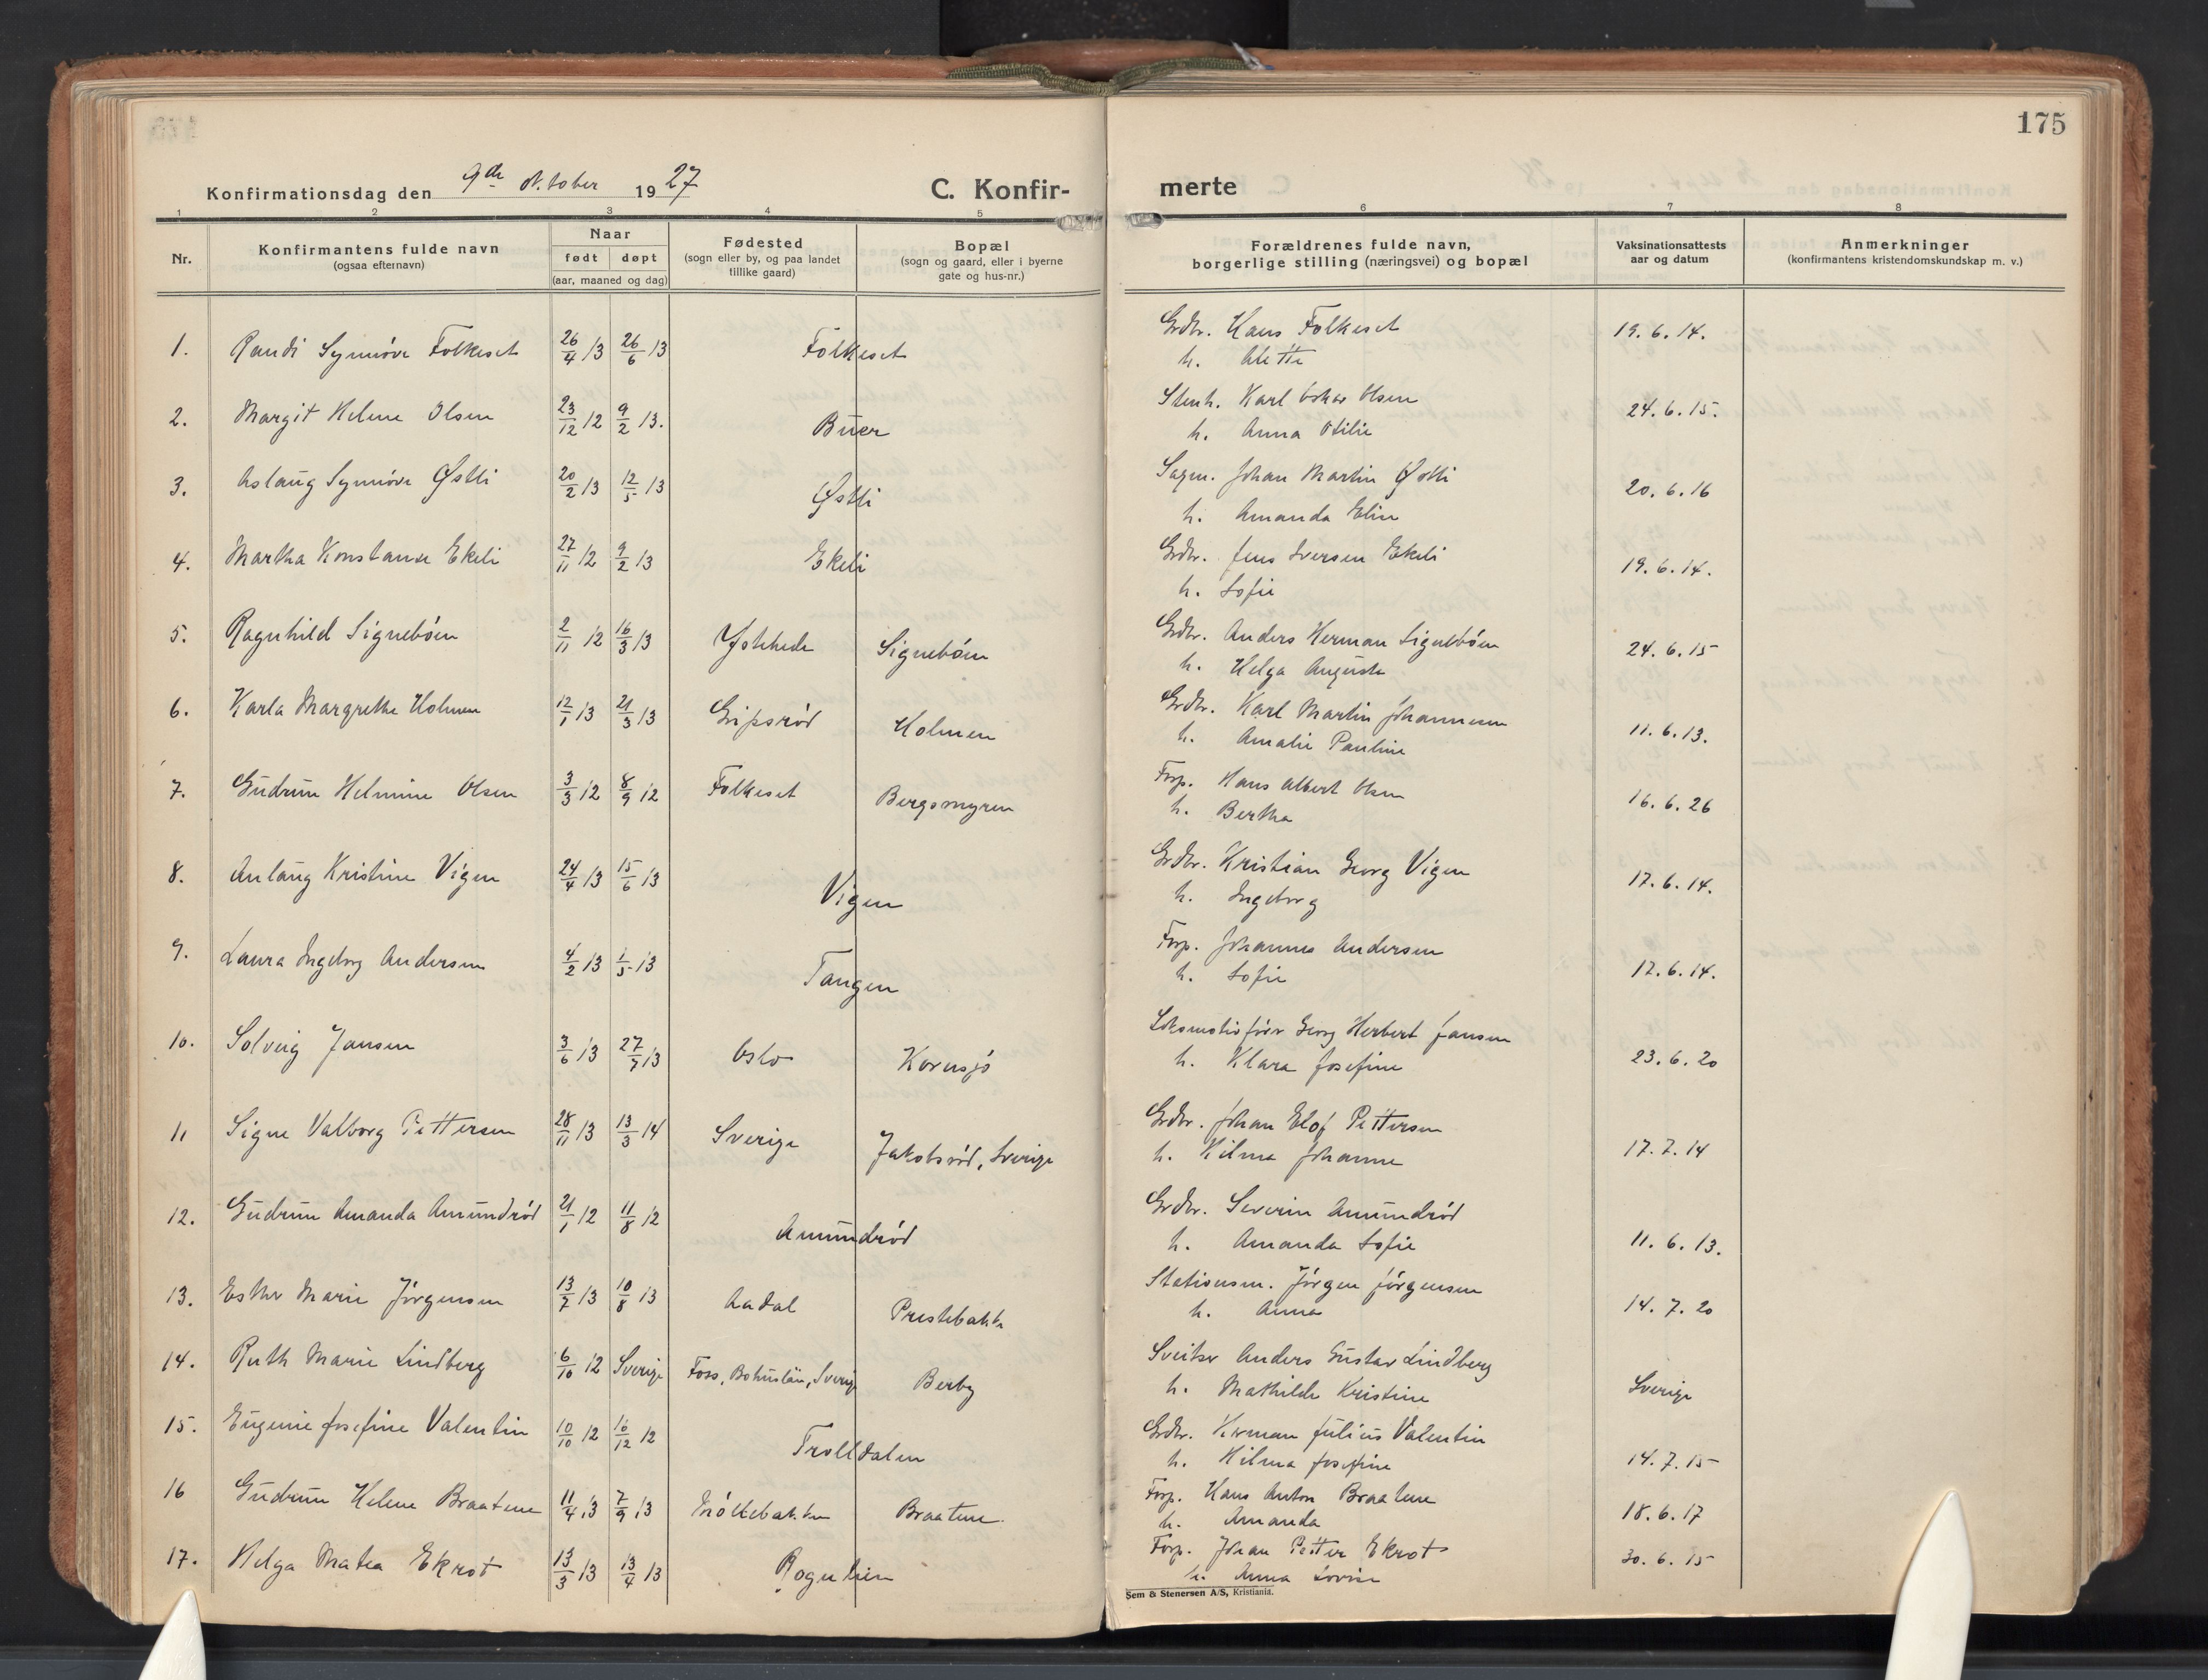 175
Konfirmationsdag den 9de oktober 1927
C. Konfir-
merte
1 2 3 4 5 6 7 8
Nr.
Konfirmantens fulde navn
(ogsaa efternavn)
Naar
født døpt
(aar, maaned og dag)
Fødested
(sogn eller by, og paa landet
tillike gaard)
Bopæl
(sogn og gaard, eller i byerne
gate og hus-nr.)
Forældrenes fulde navn,
borgerlige stilling (næringsvei) og bopæl
Vaksinationsattests
aar og datum
Anmerkninger
(konfirmantens kristendomskundskap m. v.)
1. Randi Synnöve Folkeset 26/4 13 26/6 13 Folkeset Grdbr. Hans Folkeset 19.6.14.
h. Alette
2. Margit Helene Olsen 23/12 12 9/2 13. Buer Stenh. Karl Oskar Olsen 24.6.15.
h. Anna Otilie
3. Aslaug Synnöve Østli 20/2 13 12/5 13 Østli Sagm. Johan Martin Østli 20.6.16
h. Amanda Elin
4. Martha Konstanse Ekeli 27/11 12 9/2 13 Ekeli Grdbr. Jens Iversen Ekeli 19.6.14.
h. Sofie
5. Ragnhild Signeböen 2/11 12 16/3 13 Ystehede Signeböen Grdbr. Anders Herman Signeböen 24.6.15
h. Helga Augusta
6. Karla Margrethe Holmen 12/1 13 21/3 13 Gripsröd Holmen Grdbr. Karl Martin Johannesen 11.6.13.
h. Amalie Pauline
7. Gudrun Helmine Olsen 3/3 12 8/9 12 Folkeset Bergsmyren Forp. Hans Albert Olsen 16.6.26
h. Bertha
8. Anlaug Kristine Vigen 24/4 13 15/6 13 Vigen Grdbr. Kristian Georg Vigen 17.6.14.
h. Ingeborg
9. Laura Ingeborg Andersen 4/2 13 1/5 13 Tangen Forp. Johannes Andersen 12.6.14.
h. Sofie
10. Solveig Jansen 3/6 13 27/7 13 Oslo Kornsjö Lokomotivförer Georg Herbert Jansen 23.6.20
h. Klara Josefine
11 Signe Valborg Pettersen 28/11 13 13/3 14 Sverige Jakobsröd, Sverige Grdbr. Johan Elof Pettersen 17.7.14
h. Hilma Johanne
12. Gudrun Amanda Amundröd 21/1 12 11/8 12 Amundröd Grdbr. Severin Amundröd 11.6.13.
h. Amanda Sofie
13. Esther Marie Jörgensen 13/7 13 10/8 13 Aadal Prestebakke Stationsm. Jörgen Jörgensen 14.7.20
h. Anna
14. Ruth Marie Lindberg 6/10 12 Sverige Foss, Bohuslän, Sverige Berby Sveitser Anders Gustav Lindberg Sverige
h. Mathilde Kristine
15. Eugenie Josefine Valentin 10/10 12 16/12 12 Trolldalen Grdbr. Herman Julius Valentin 14.7.15
h. Hilma Josefine
16 Gudrun Helene Braatene 11/4 13 7/9 13 Braatene. Forp. Hans Anton Braatene 18.6.17
h. Amanda
17. Helga Matea Ekrot 13/3 13 13/4 13 Rognlien Forp. Johan Petter Ekrot 30.6.15
h. Anna Lovise
Sem & Stenersen A/S, Kristiania.